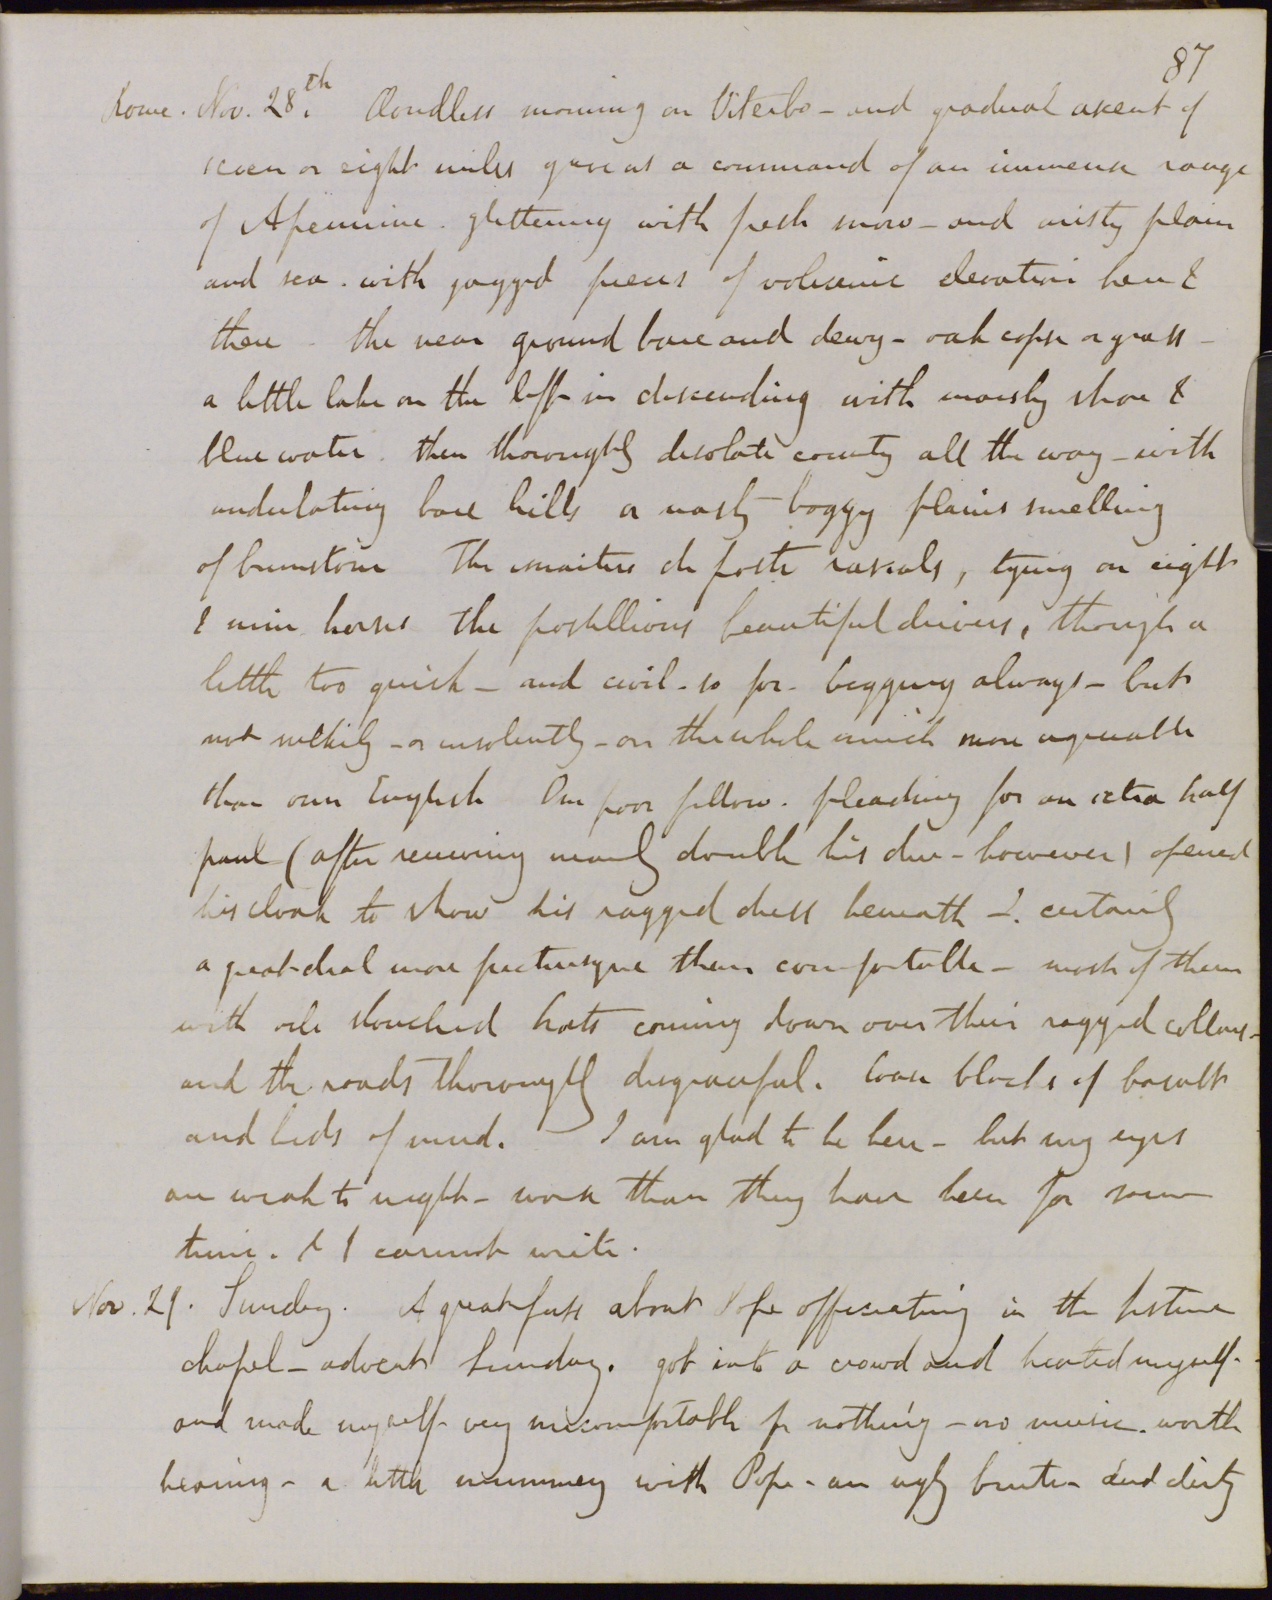 87
Rome. Nov. 28th. Cloudless morning on Viterbo - and gradual ascent of
seven or eight miles gave us a command of an immense range
of Apennine. glittering with fresh snow - and misty plain
and sea. with jagged pieces of volcanic elevation here &
there - the near ground bare and dewy - oak copse or grass -
a little lake on the left in descending with marshy shore &
blue water. then thoroughly desolate country all the way - with
undulating bare hills or nasty boggy plains smelling
of brimstone The maitres de poste rascals, tying on eight
& nine horses The postillions beautiful drivers, though a
little too quick - and civil - so far - begging always - but
not sulkily - or insolently - on the whole much more agreeable
than our English One poor fellow. pleading for an extra half
paul (after receiving nearly double his due - however) opened
his cloak to show his ragged dress beneath - certainly
a great deal more picturesque than comfortable - most of them
with old slouched hats coming down over their ragged collars -
and the roads thoroughly disgraceful. loose blocks of basalt
and beds of mud. I am glad to be here - but my eyes
are weak to night - worse than they have been for some
time. & I cannot write.
Nov. 29. Sunday. A great fuss about Pope officiating in the sistine
chapel - advent Sunday. got into a crowd and heated myself -
and made myself very uncomfortable for nothing - no music. worth
hearing - a little mummery with Pope - an ugly brute - and dirty